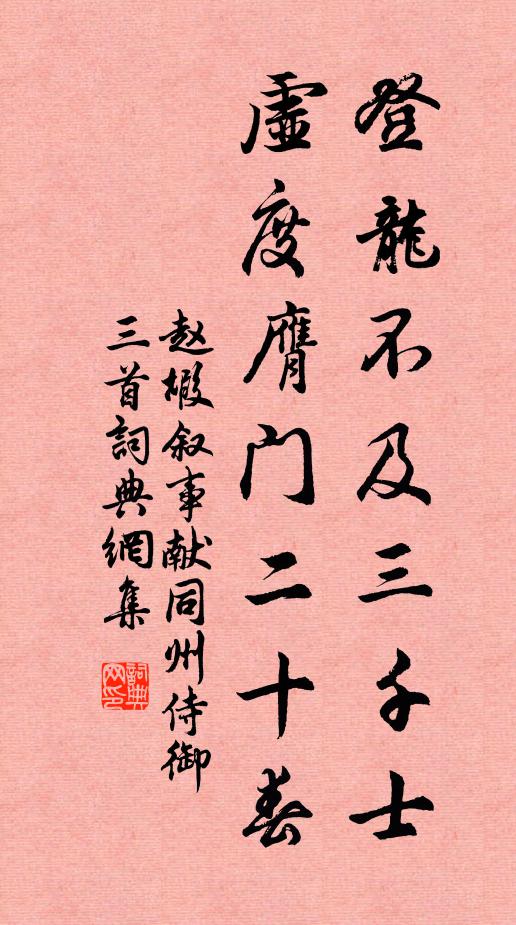 登龍不及三千士
虛度膺门二十春
赵嘏叙事献同州侍御
三首詞典網集
詞典网印